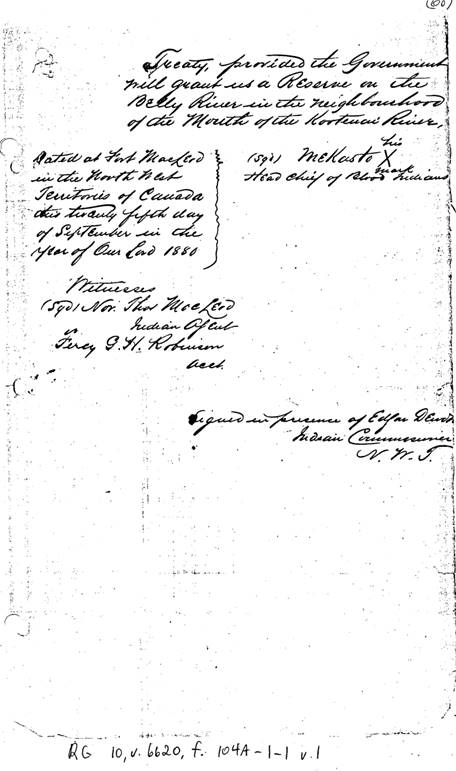 Treaty, provided the Government
will grant us a Reserve on the
Belly River in the neighbourhood
of the Mouth of the Kootenai River,
Dated at Fort MacLeod
in the North West
Territories of Canada
this twenty fifth day
of September in the
year of Our Lord 1880
his
(sgd) Mekasto X
mark
Head Chief of Blood Indians
Witnesses
(Sgd) Nor. Thos MacLeod
Indian Agent
" Percy G. H. Robinson
acct.
Signed in presence of Edgar Dewdney
Indian Commissioner
N. W. T.
RG 10, v. 6620, f. 104A-1-1 v.1